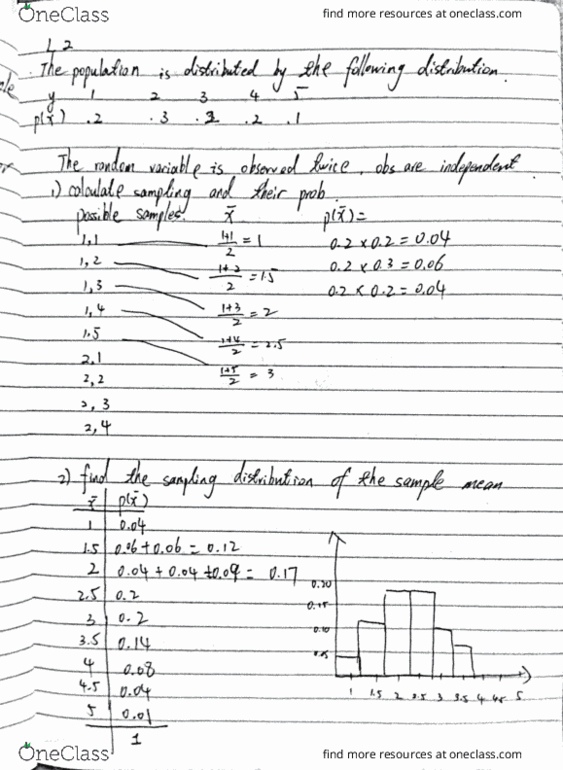 OneClass find more resources at oneclass.com
1, 2
The population is distributed by the following distribution.
y 1 2 3 4 5
p(x) .2 .3 .2 .2 .1
The random variable is observed twice, obs are independent.
1) calculate sampling and their prob.
possible samples. x̄ p(x̄)=
1,1 1+1/2 = 1 0.2 × 0.2 = 0.04
1, 2 1+2/2 = 1.5 0.2 × 0.3 = 0.06
1, 3 1+3/2 = 2 0.2 × 0.2 = 0.04
1, 4 1+4/2 = 2.5
1.5 1+5/2 = 3
2,1
2,2
2, 3
2, 4
2) find the sampling distribution of the sample mean
x̄ p(x̄)
1 0.04
1.5 0.06+0.06 = 0.12
2 0.04 + 0.04 +0.09 = 0.17
2.5 0.2
3 0.2
3.5 0.14
4 0.08
4.5 0.04
5 0.01
1
0.20
0.15
0.10
0.05
1 1.5 2 2.5 3 3.5 4 4.5 5
OneClass find more resources at oneclass.com